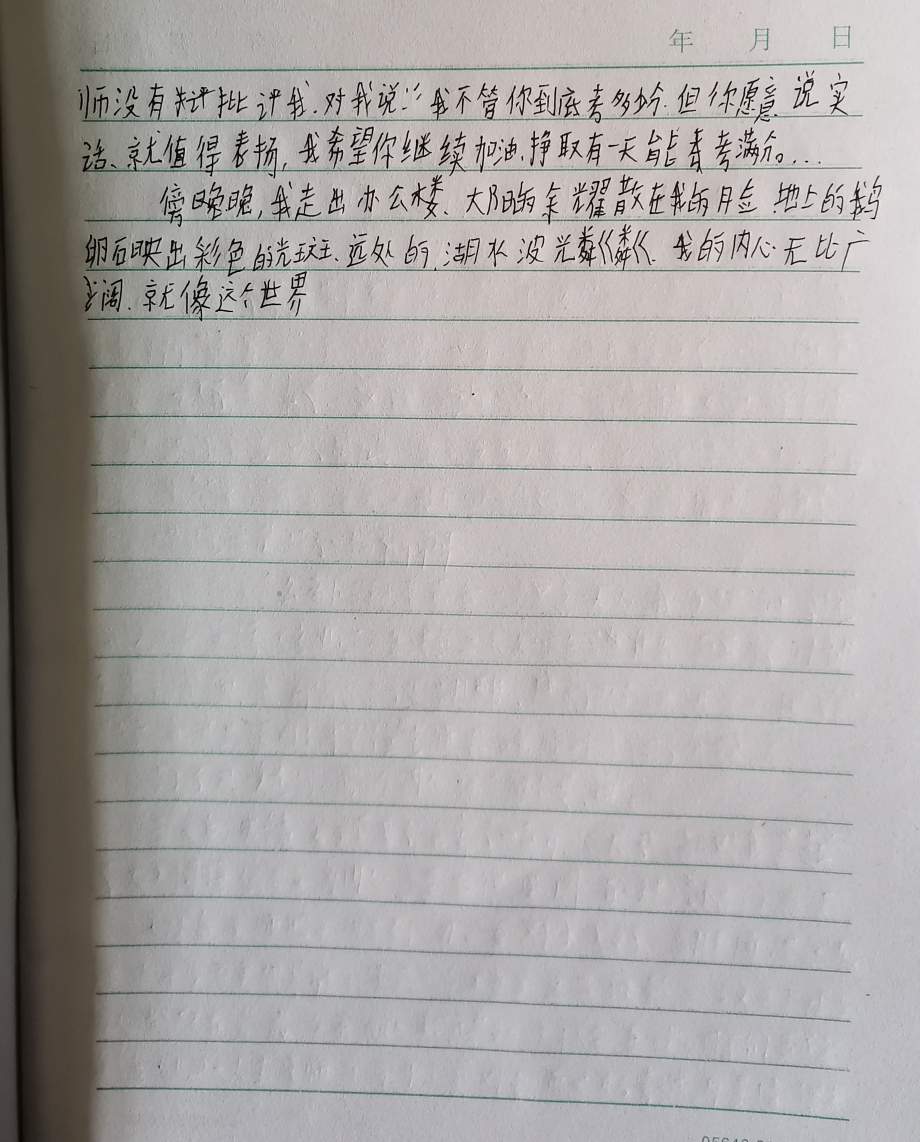 年 月 日
师没有批评我.对我说:"我不管你到底考多少分.但你愿意说实
话、就值得表扬,我希望你继续加油,挣取有一天能考满分。...
傍晚,我走出办公楼、太阳的余耀散在我的脸.地上的鹅
卵石映出彩色的光斑、远处的湖水波光粼粼.我的内心无比广
阔.就像这个世界